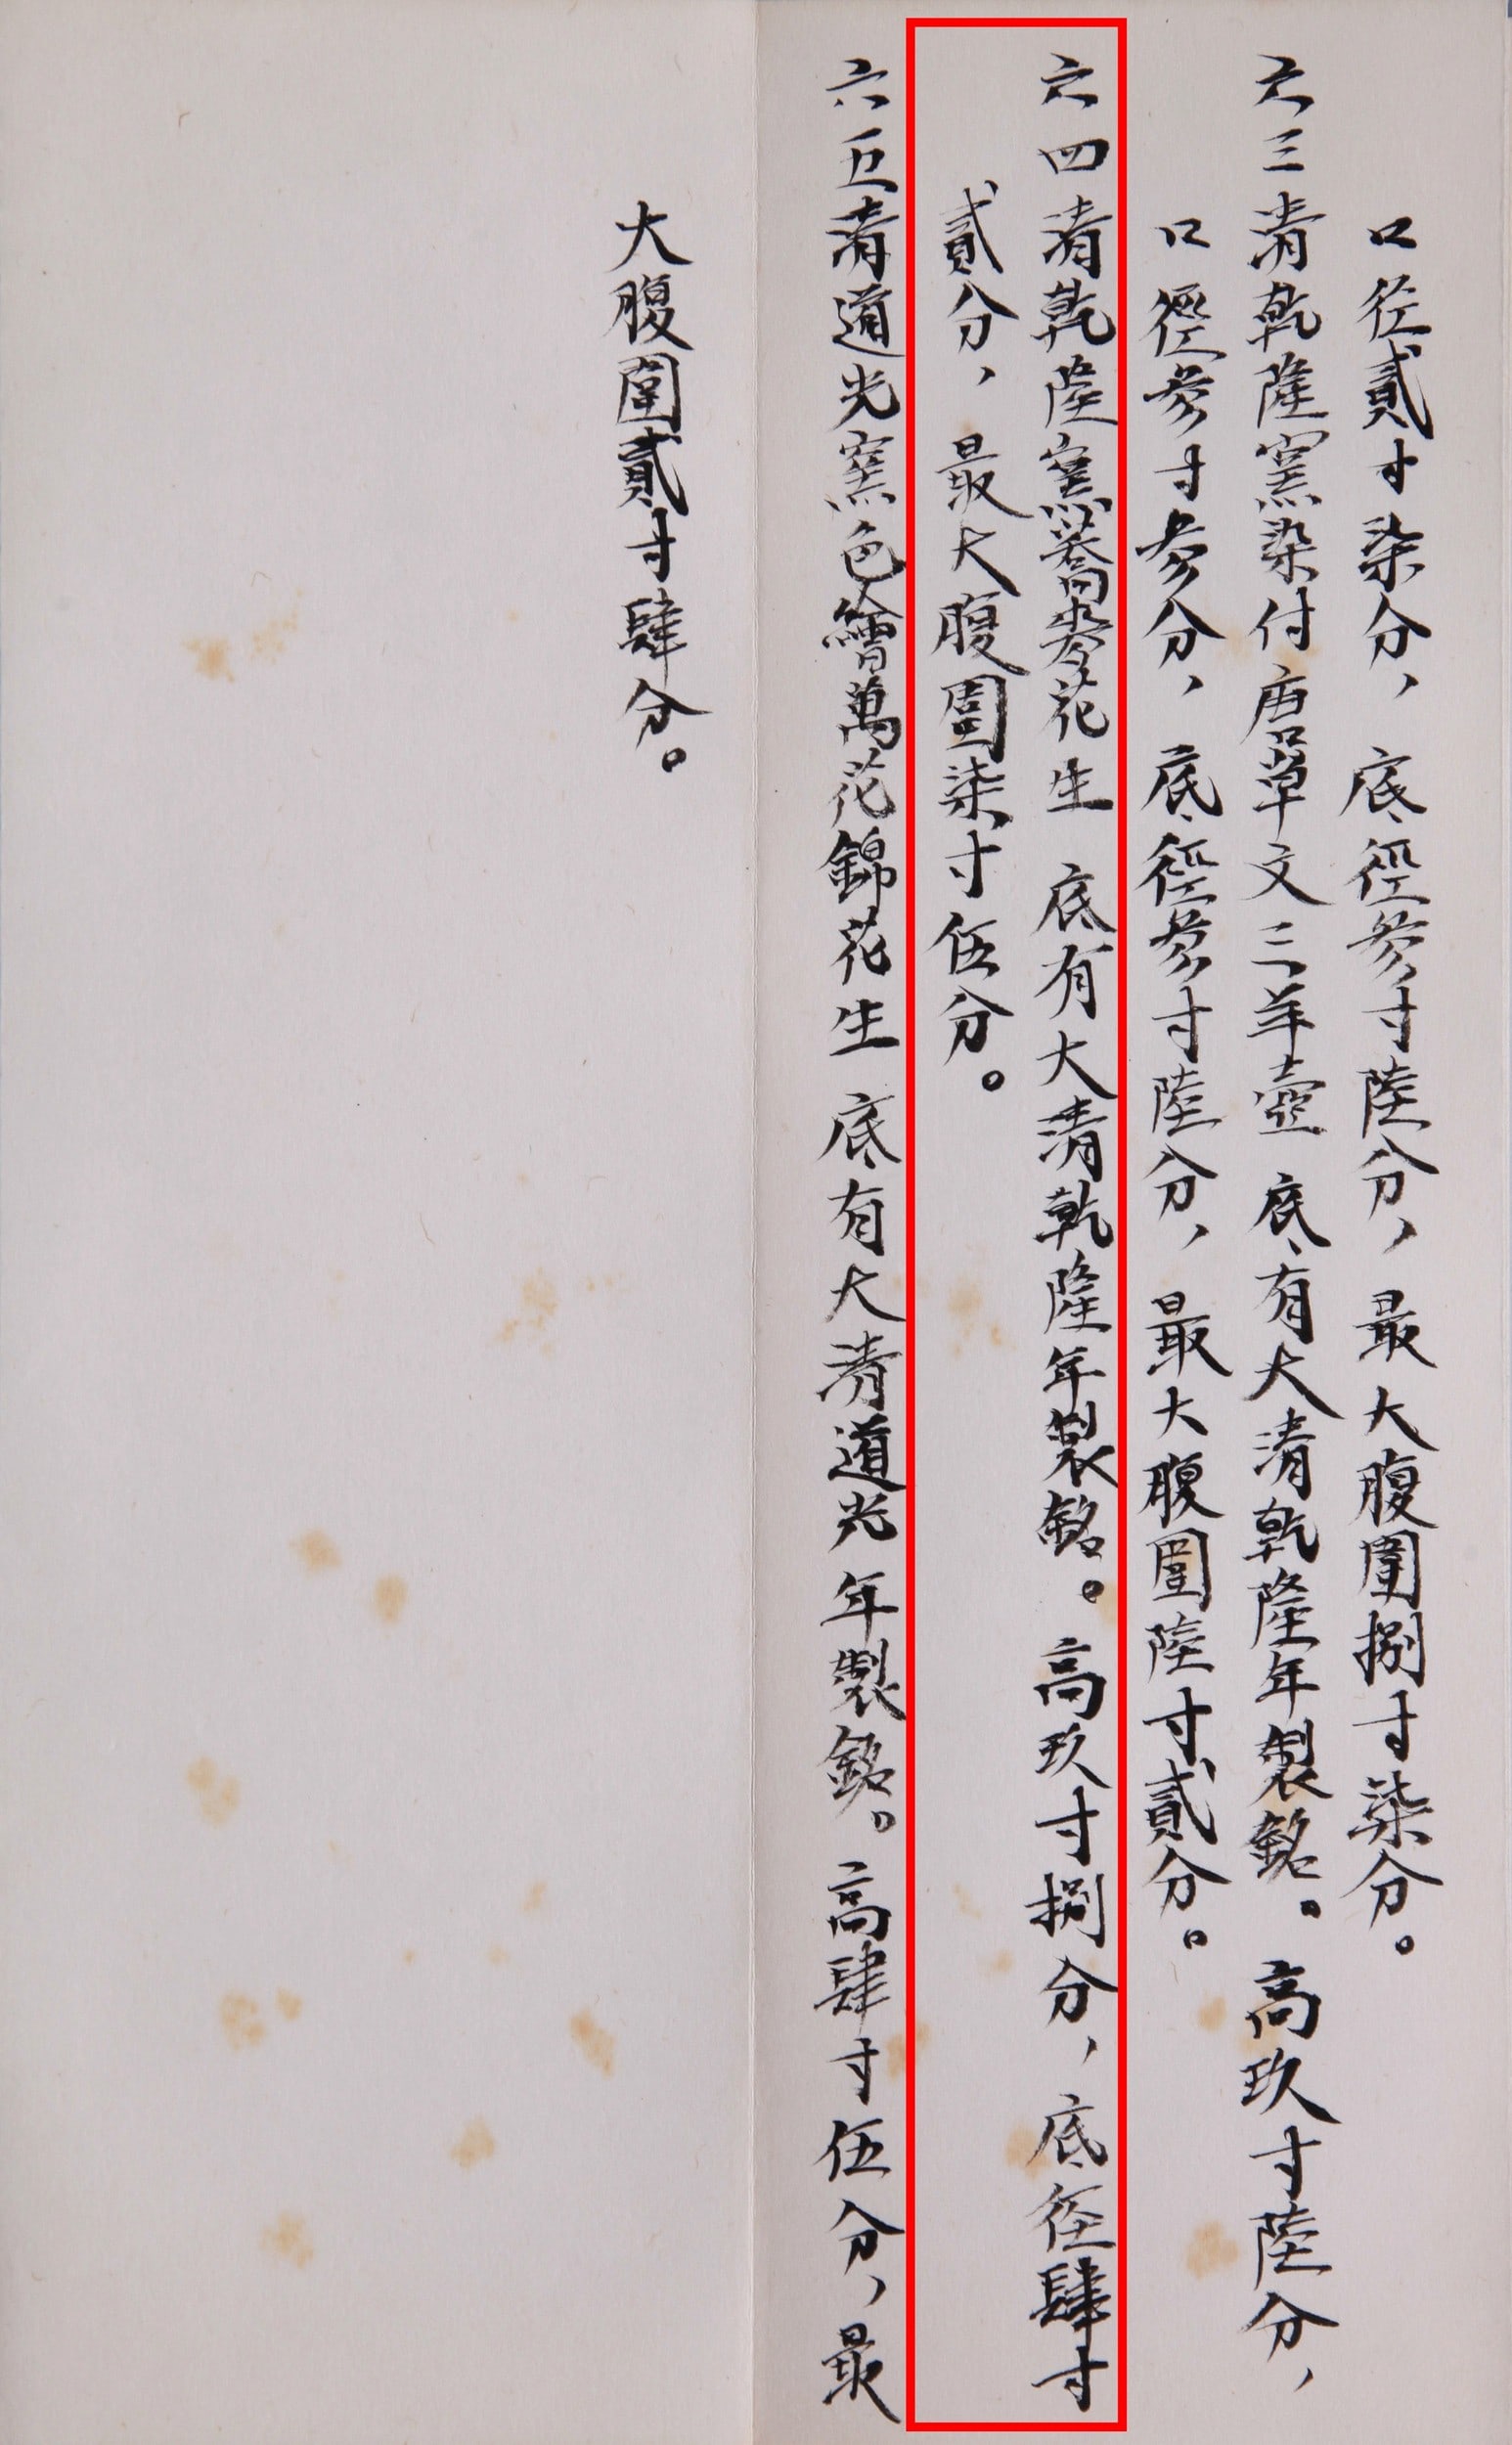 口径貳寸柒分，底徑參寸陸分，最大腹圍捌寸柒分。
六三清乾隆窯染付唐草文三羊壺 底有大清乾隆年製銘。高玖寸陸分，
口徑參寸參分，底徑參寸陸分，最大腹圍陸寸貳分。
六四清乾隆窯蕎麥花生 底有大清乾隆年製銘。高玖寸捌分，底径肆寸
貳分，最大腹圍柒寸伍分。
六五清道光窯色繪萬花錦花生 底有大清道光年製銘。高肆寸伍分，最
大腹圍貳寸肆分。